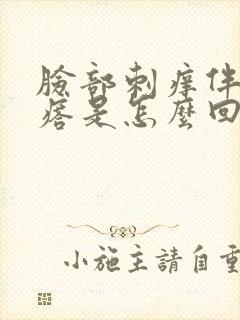 臉部刺痒伴
痞是怎麼回
小施主請自重